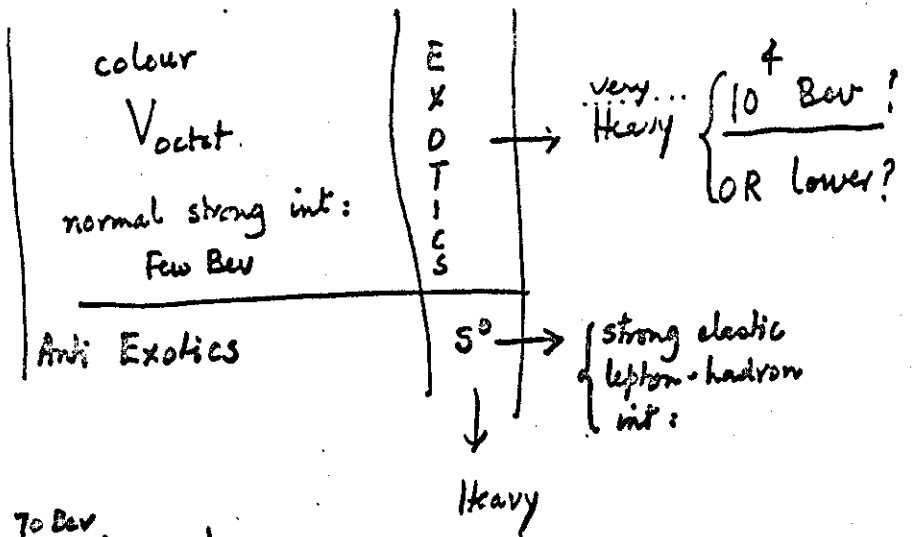 colour
V octet.
normal strong int:
Few Bev
EXOTICS
very...
Heavy
10⁴ Bev !
OR lower?
Anti Exotics
S⁰
strong elastic
lepton-hadron
int:
Heavy
70 Bev